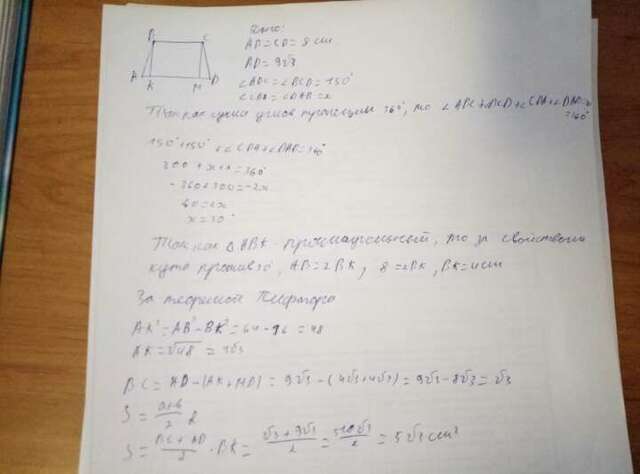 B C
A K M D
Дано:
AB = CD = 8 см
AD = 9√3
∠ABC = ∠BCD = 150°
∠CDA = ∠DAB = x
Так как сума углов трапеции 360°, то ∠ABC + ∠BCD + ∠CDA + ∠DAB =
= 360°
150° + 150° + ∠CDA + ∠DAB = 360°
300 + x + x = 360°
-360 + 300 = -2x
60 = 2x
x = 30°
Так как △ABK - прямоугольный, то за свойством
кута против 30°, AB = 2BK, 8 = 2BK, BK = 4 см
За теоремой Пифагора
AK² = AB² - BK² = 64 - 16 = 48
AK = √48 = 4√3
BC = AD - (AK + MD) = 9√3 - (4√3 + 4√3) = 9√3 - 8√3 = √3
S = a+b/2 h
S = BC + AD/2 · BK = √3 + 9√3/2 = 10√3/2 = 5√3 см²